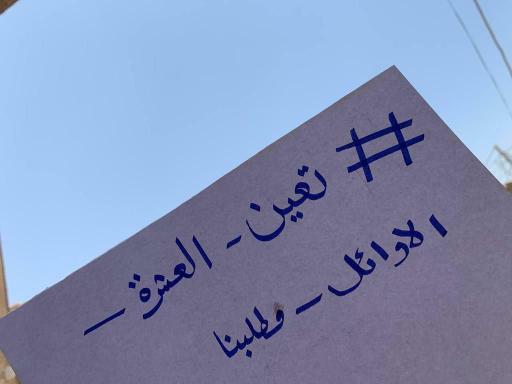 #تعين - العشرة -
الاوائل - مطلبنا